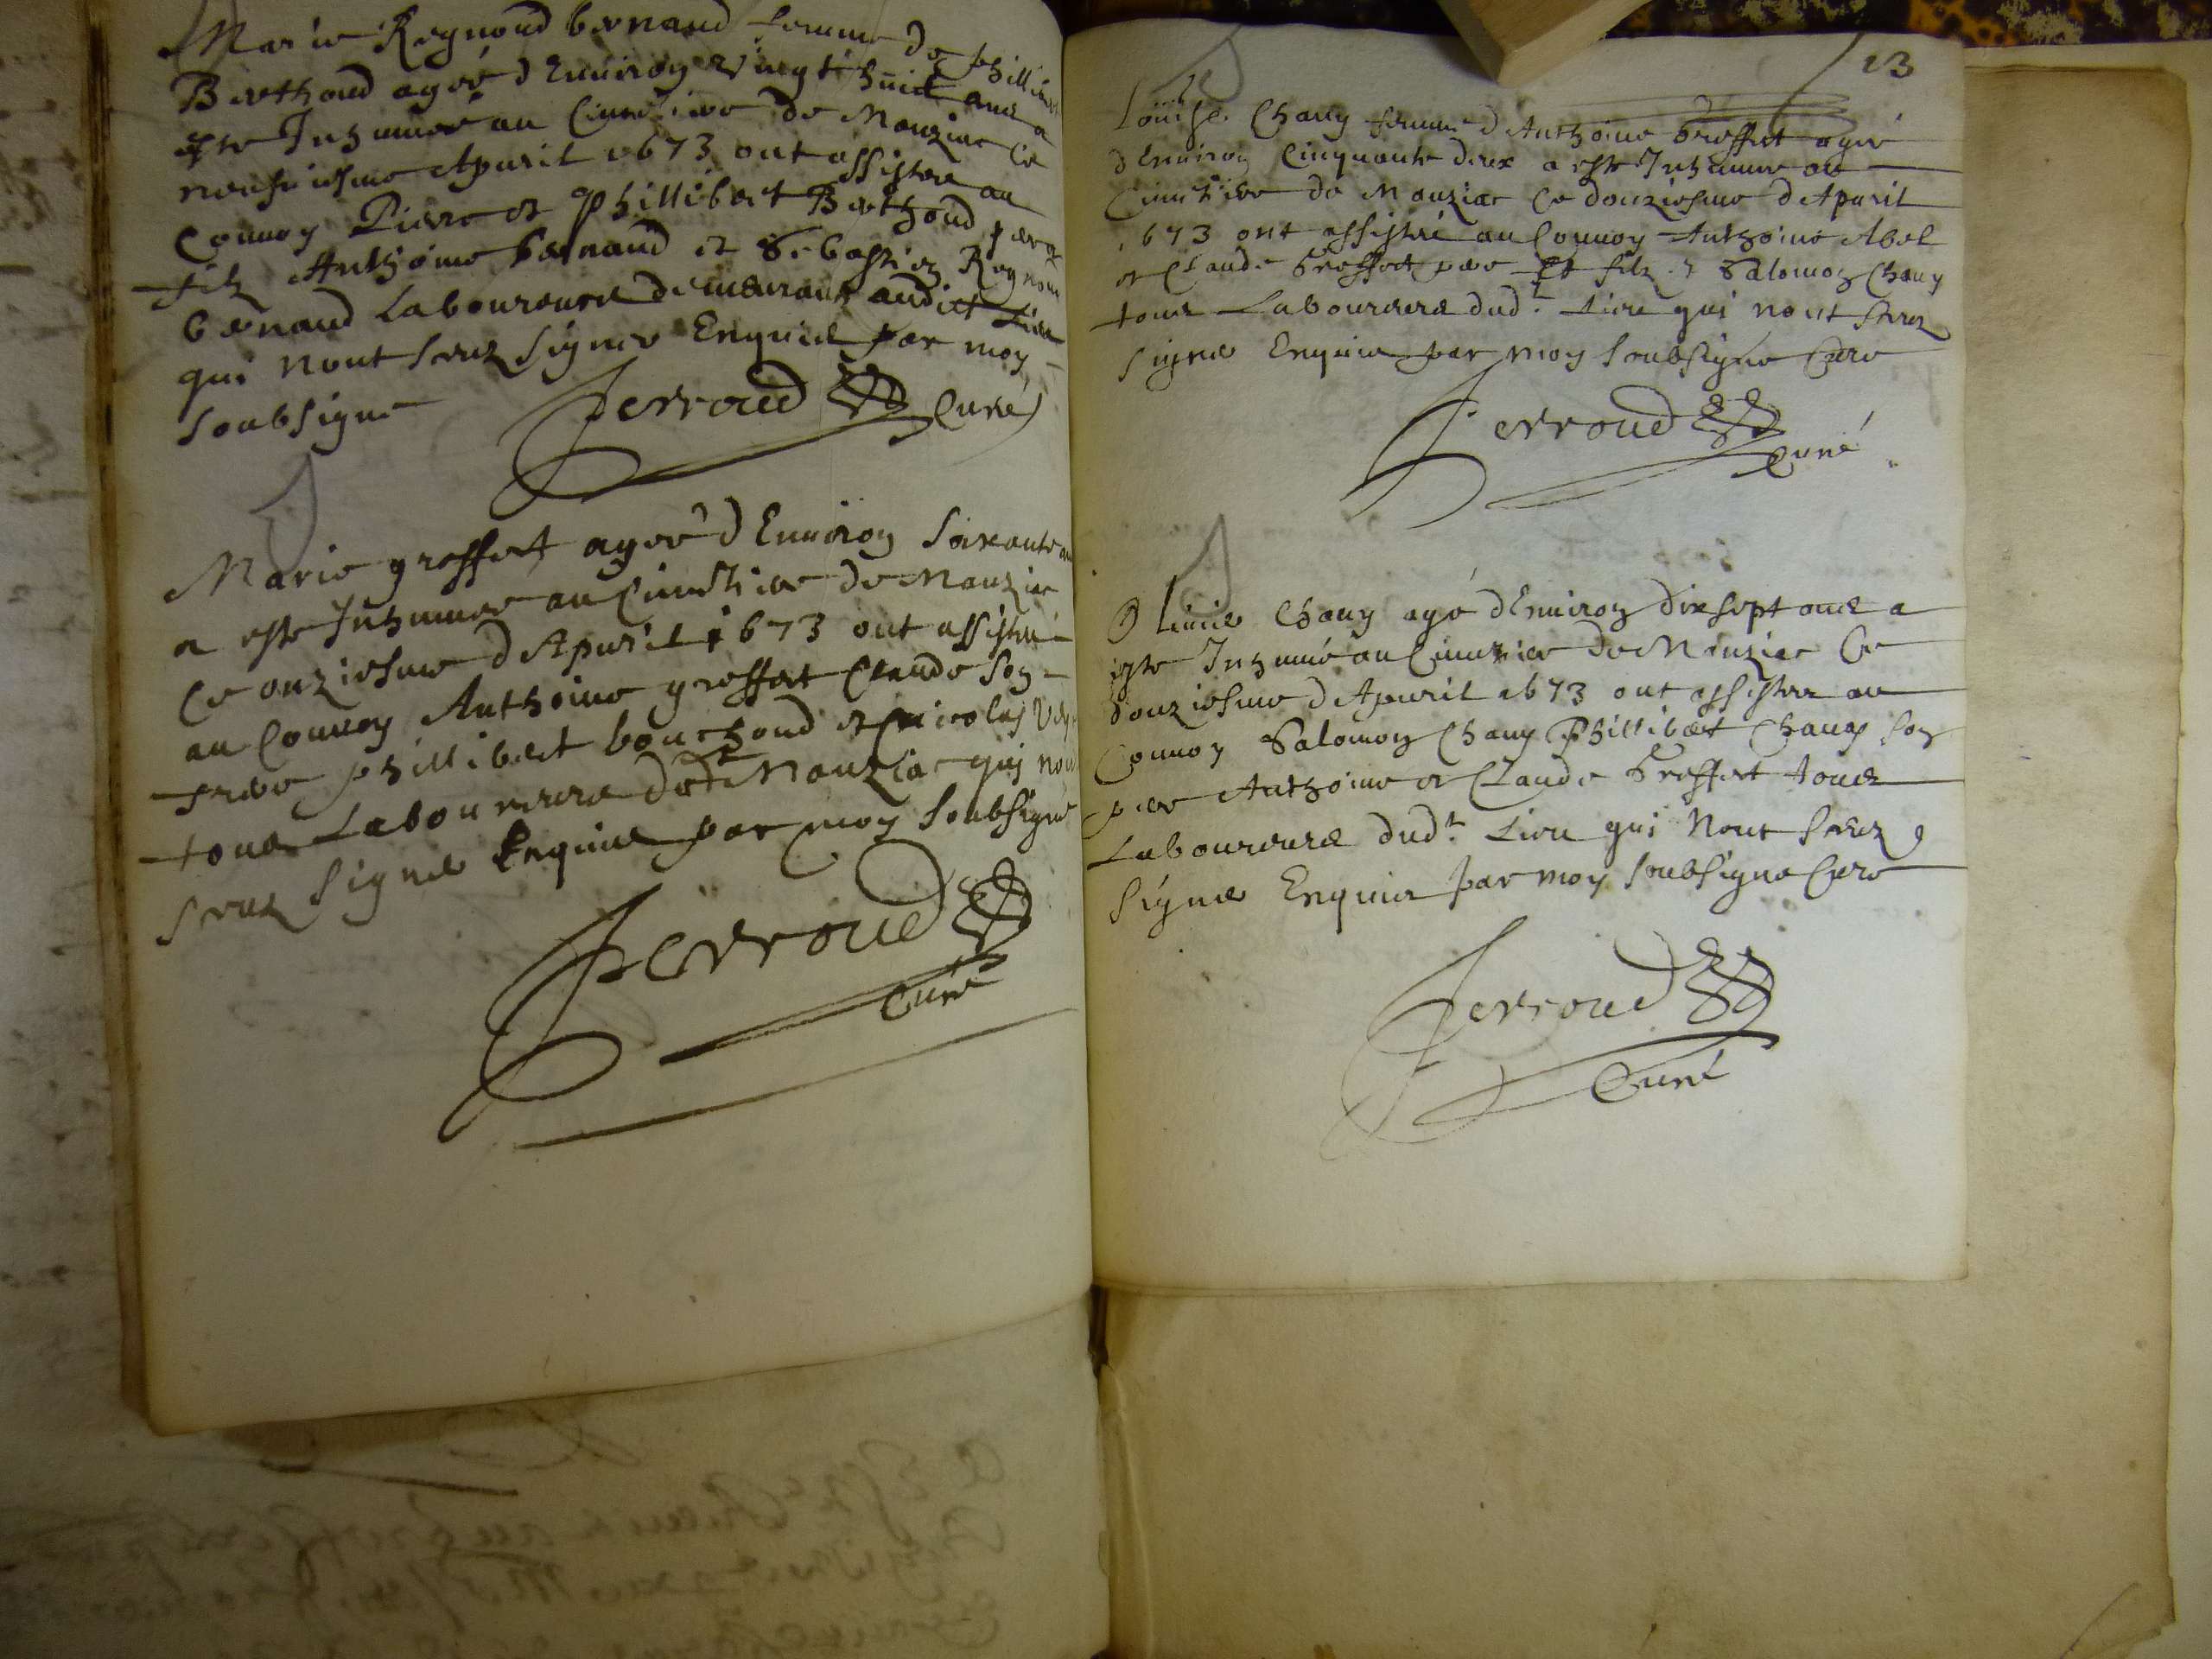 Marie Regnoud bernaud femme de phillibert
Berthoud ageé d Enuiron Vingt huict ans a
este Inhumeé au Cimetiere de Manziac Ce
neufuiesme Apuril 1673 ont assistez au
Conuoy Pierre et Phillibert Berthoud pere et
filz Anthoine bernaud et Sebastien Regnoud
bernaud Laboureurs demeurans audict Lieu
qui nont sceuz signer Enquis par moy
soubsigne
Perroud Curé
Marie greffect ageé d Enuiron soixante ans
a este Inhumeé au Cimetiere de Manziac
Ce onziesme d Apuril 1673 ont assisté
au Conuoy Anthoine greffect Claude son
frere phillibert bouchoud et nicolas
tous Laboureurs dudt Manziac qui nont
sceuz signer Enquis par moy soubsigné
Perroud
Curé
13
Louise Chany femme d Anthoine Greffect ageé
d Enuiron Cinquante deux a este Inhumeé au
Cimetiere de Manziac Ce douziesme d Apuril
1673 ont assisté au Conuoy Anthoine Abel
et Claude Greffect pere Et filz & Salomon Chany
tous Laboureurs dudt. Lieu qui nont sceuz
signer Enquis par moy soubsigne Cure
Perroud
Curé
Oliuier Chany agé d Enuiron dix sept ans a
este Inhumé au Cimetiere de Manziac Ce
douziesme d Apuril 1673 ont assistez au
Conuoy Salomon Chany Phillibert Chany son
pere Anthoine et Claude Greffect tous
Laboureurs dudt. Lieu qui Nont sceuz
signer Enquis par moy soubsigne Cure
Perroud
Curé